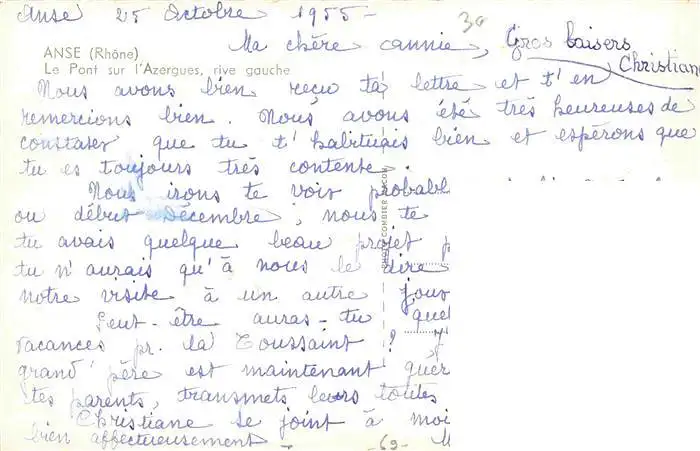 Anse 25 Octobre 1955 -
30
Ma chère cannie,
Gros baisers
Christian
ANSE (Rhône)
Le Pont sur l'Azergues, rive gauche
Nous avons bien reçu ta lettre et t'en
remercions bien. Nous avons été très heureuses de
constater que tu t'habituais bien et espérons que
tu es toujours très contente.
Nous irons te voir probabl
ou début Décembre, nous te
tu avais quelque beau projet p
tu n'aurais qu'à nous le dire
notre visite à un autre jour
Peut-être auras-tu quel
vacances pr. la Toussaint ?
grand' père est maintenant guér
tes parents, transmets leurs toutes
Christiane se joint à moi
bien affectueusement
-69- M
PHOTO COMBIER MACON